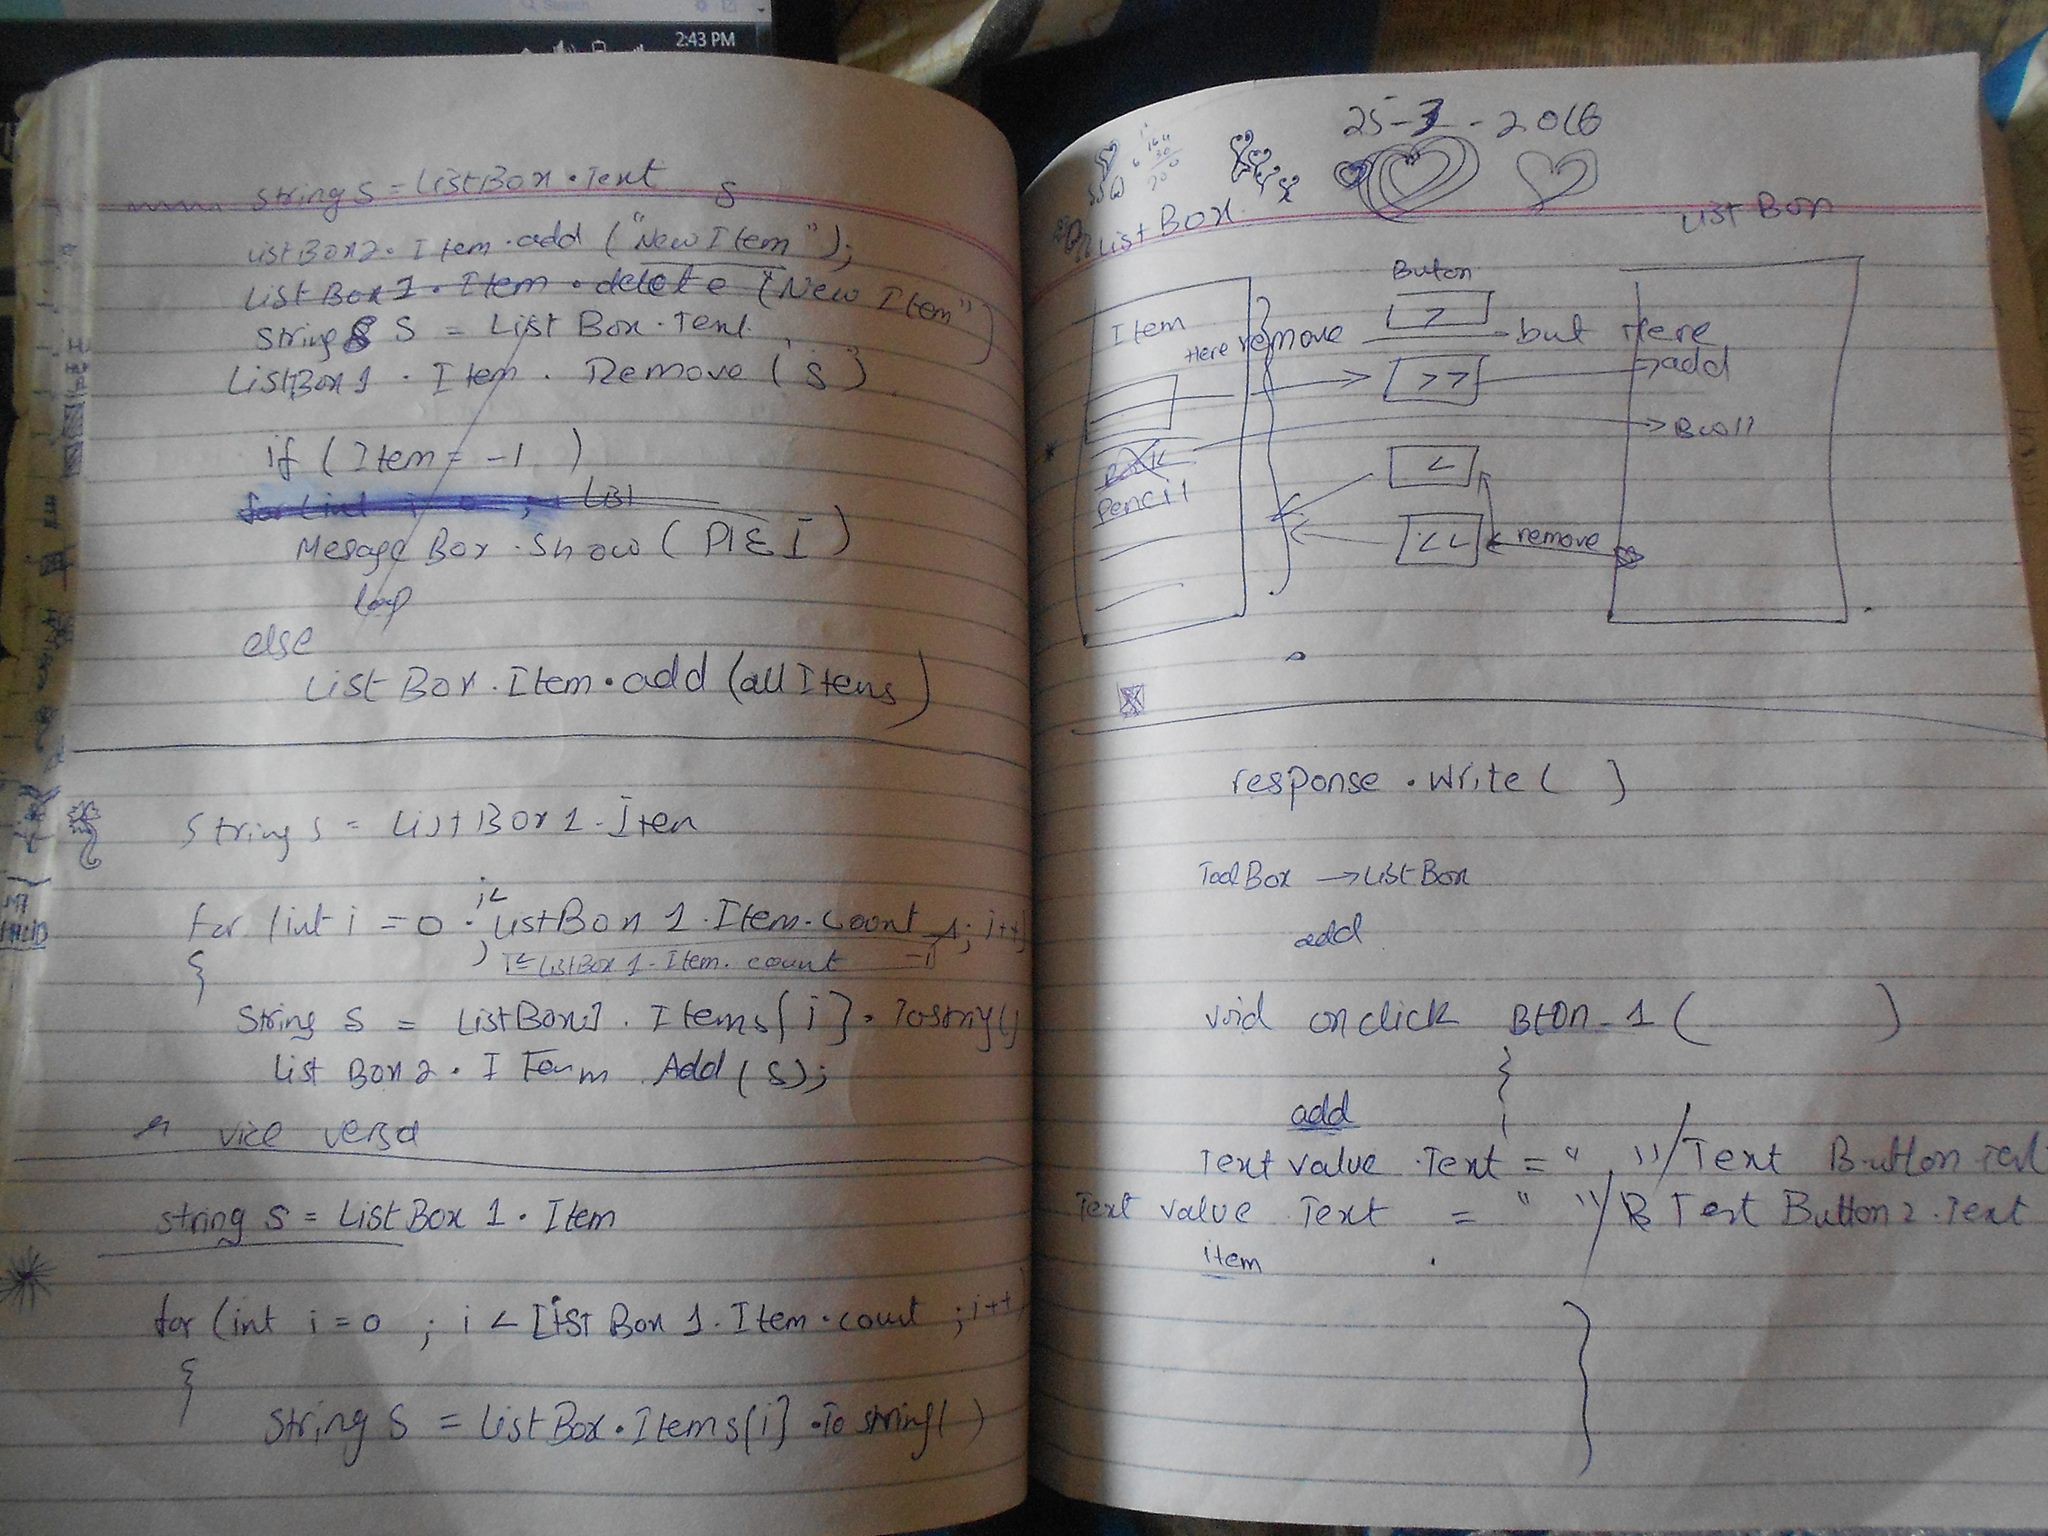 Search
2:43 PM
string s = ListBox.Text
s
ListBox2.Item.add ("New Item");
List Box 1. Item . delete ("New Item")
string S = List Box. Text.
ListBox1 . Item . Remove (s)
if (Item = -1 )
for (int i = 0 ; List
Mesage Box . Show (
loop
else
List Box . Item . add (all Items)
String s = List Box 1. Item
i<
for (int i = 0 ; ListBox 1. Item. Count -1; i++)
I< ListBox 1. Item. count -1
{
String s = ListBox1 . Items[i]. ToString()
List Box 2 . Item Add (s);
vice versa
string s = List Box 1 . Item
for (int i = 0 ; i < List Box 1. Item . count ; i++)
{
String S = List Box . Items[i] . To string( )
25-3-2016
List Box
List Box
Buton
Item
>
Here remove
but Here
>>
add
<
Pencil
<<
remove
response . write ( )
Tool Box → List Box
add
void onclick Bton_1 ( )
{
add
Text value . Text = " " / Text Button Text
Text value . Text = " " / Text Button 2 . Text
item
}